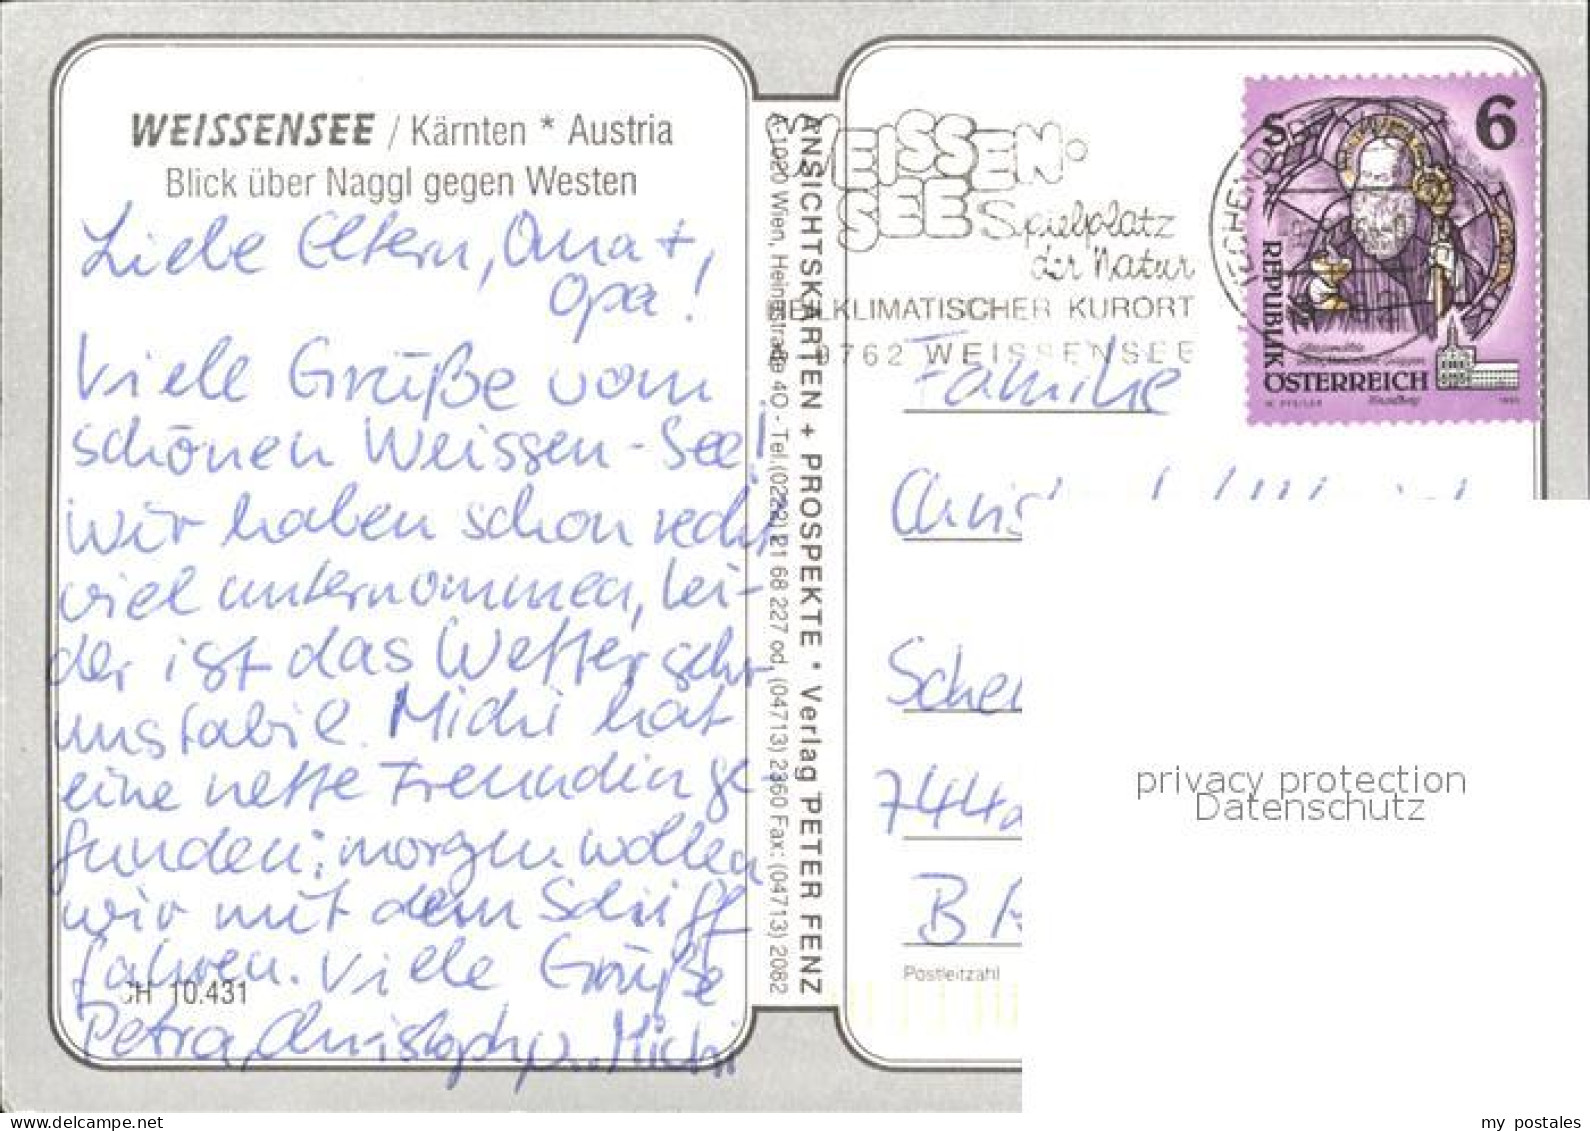 WEISSENSEE / Kärnten * Austria
Blick über Naggl gegen Westen
Liebe Eltern, Oma +,
Opa!
Viele Grüße vom
schönen Weissen-See!
Wir haben schon recht
viel unternommen, lei-
der ist das Wetter sehr
unstabil. Michi hat
eine nette Freundin ge
funden; morgen wollen
wir mit dem Schiff
fahren. Viele Grüße
CH 10.431
Petra, Christoph u. Michi
ANSICHTSKARTEN + PROSPEKTE * Verlag PETER FENZ
A-1020 Wien, Heinestraße 40 - Tel.(0222) 21 68 227 od. (04713) 2360 Fax: (04713) 2082
WEISSEN-
SEE Spielplatz
der Natur
HEILKLIMATISCHER KURORT
9762 WEISSENSEE
S 6
REPUBLIK
ÖSTERREICH
Familie
Postleitzahl
privacy protection
Datenschutz
akpool.de
my postales